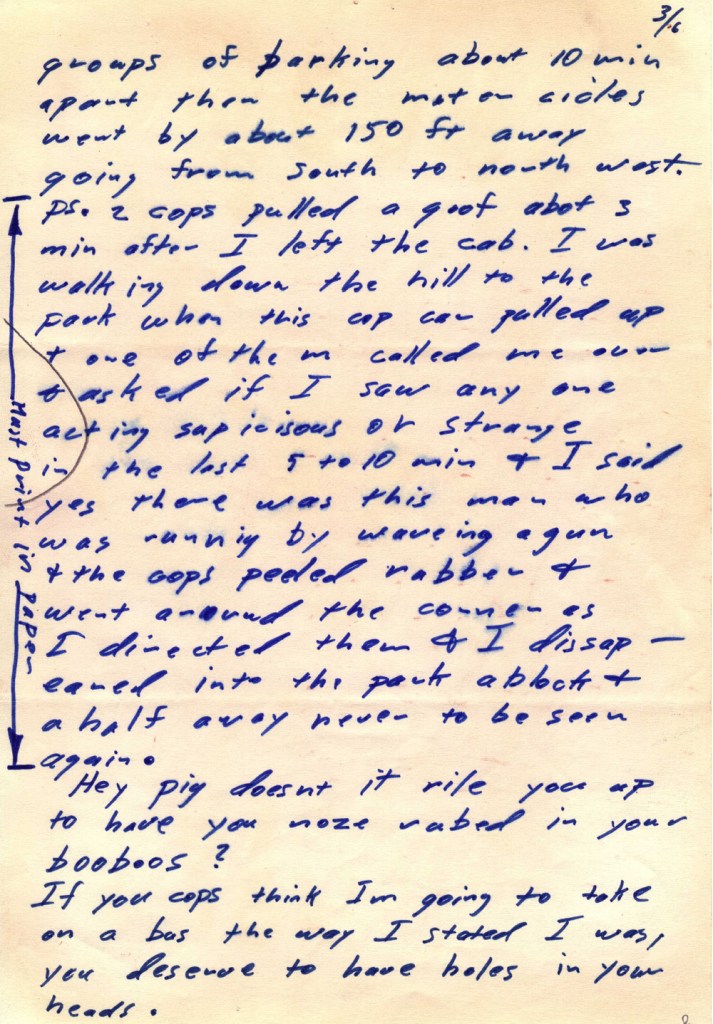 3/6
groups of barking about 10 min
apart then the motor cicles
went by about 150 ft away
going from south to north west.
ps. 2 cops pulled a goof abot 3
min after I left the cab. I was
walking down the hill to the
park when this cop car pulled up
+ one of them called me over
+ asked if I saw any one
acting supicisous or strange
in the last 5 to 10 min + I said
yes there was this man who
was runnig by waveing a gun
& the cops peeled rubber +
went around the corner as
I directed them & I dissap—
eared into the park a block +
a half away never to be seen
again.
Must print in paper
Hey pig doesnt it rile you up
to have you noze rubed in your
booboos?
If you cops think Im going to take
on a bus the way I stated I was,
you deserve to have holes in your
heads.